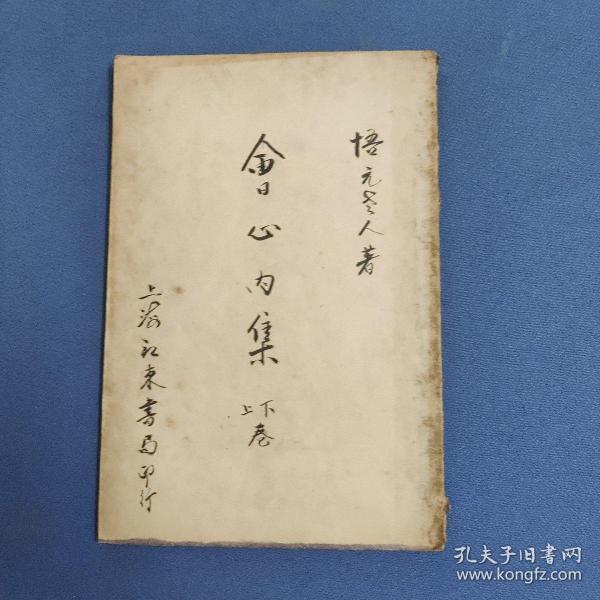 悟元老人著
會心內集
上下卷
上海江東書局印行
孔夫子旧书网
www.kongfz.com